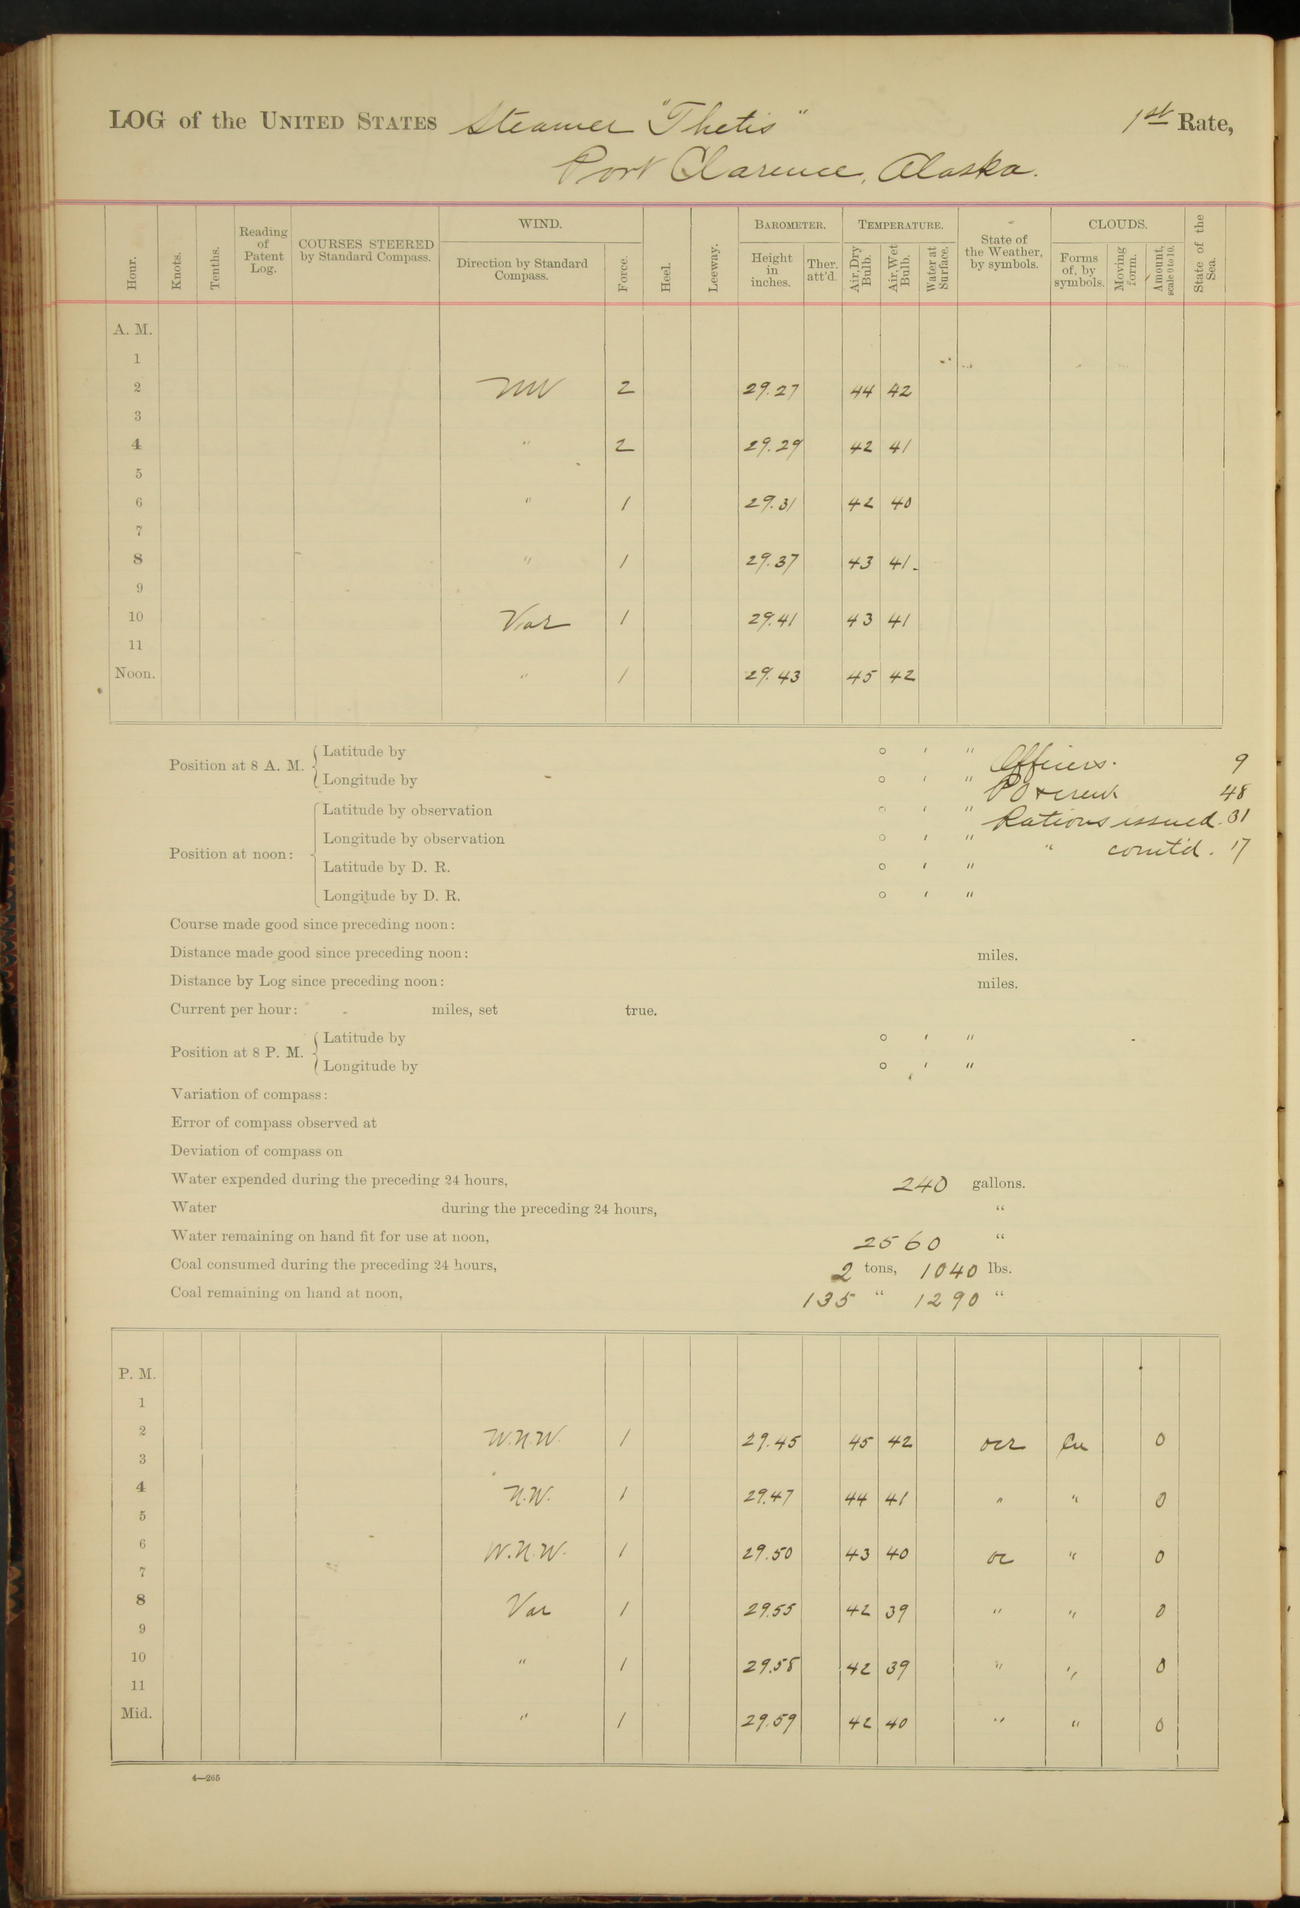 LOG of the UNITED STATES Steamer "Thetis" 1st Rate,
Port Clarence, Alaska.
Hour. Knots. Tenths. Reading of Patent Log. COURSES STEERED by Standard Compass. WIND. Direction by Standard Compass. Force. Heel. Leeway. BAROMETER. Height in inches. Ther. att'd. TEMPERATURE. Air, Dry Bulb. Air, Wet Bulb. Water at Surface. State of the Weather, by symbols. CLOUDS. Forms of, by symbols. Moving form. Amount, scale 0 to 10. State of the Sea.
A. M.
1
2 NW 2 29.27 44 42
3
4 " 2 29.29 42 41
5
6 " 1 29.31 42 40
7
8 " 1 29.37 43 41
9
10 Var 1 29.41 43 41
11
Noon. " 1 29.43 45 42
Position at 8 A. M. Latitude by ° ' " Officers. 9
Longitude by ° ' " PO & crew 48
Position at noon: Latitude by observation ° ' " Rations issued. 31
Longitude by observation ° ' " " com't'd. 17
Latitude by D. R. ° ' "
Longitude by D. R. ° ' "
Course made good since preceding noon:
Distance made good since preceding noon: miles.
Distance by Log since preceding noon: miles.
Current per hour: miles, set true.
Position at 8 P. M. Latitude by ° ' "
Longitude by ° ' "
Variation of compass:
Error of compass observed at
Deviation of compass on
Water expended during the preceding 24 hours, 240 gallons.
Water during the preceding 24 hours, "
Water remaining on hand fit for use at noon, 2560 "
Coal consumed during the preceding 24 hours, 2 tons, 1040 lbs.
Coal remaining on hand at noon, 135 " 1290 "
P. M.
1
2 W.N.W. 1 29.45 45 42 ocr Cu 0
3
4 N.W. 1 29.47 44 41 " " 0
5
6 W.N.W. 1 29.50 43 40 oc " 0
7
8 Var 1 29.55 42 39 " " 0
9
10 " 1 29.58 42 39 " " 0
11
Mid. " 1 29.59 42 40 " " 0
4—265